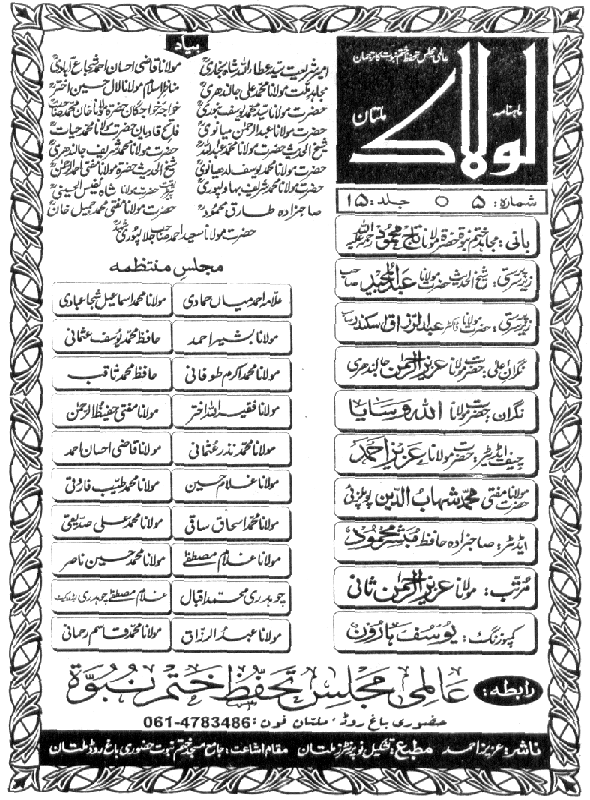 عالمی مجلس تحفظ ختم نبوت کا ترجمان
ماہنامہ
لولاک
ملتان
شمارہ: ۵ ○ جلد: ۱۵
بانی: مجاہد ختم نبوة حضرة مولانا تاج محمود رحمۃ اللہ علیہ
زیر سرپرستی: شیخ الحدیث حضرت مولانا عبدالمجید صاحب
زیر سرپرستی: حضرت مولانا ڈاکٹر عبدالرزاق سکندر
نگران اعلیٰ: حضرت مولانا عزیز الرحمن جالندھری
نگران: حضرت مولانا اللہ وسایا
چیف ایڈیٹر: حضرت مولانا عزیز احمد
حضرت مولانا مفتی محمد شہاب الدین پوپلزئی
ایڈیٹر: صاحبزادہ حافظ مبشر محمود
مرتب: مولانا عزیز الرحمن ثانی
کمپوزنگ: یوسف ہارون
بیاد
امیر شریعت سید عطاء اللہ شاہ بخاری
مولانا قاضی احسان احمد شجاع آبادی
مجاہد ملت مولانا محمد علی جالندھری
مناظر اسلام مولانا لال حسین اختر
حضرت مولانا سید محمد یوسف بنوری
خواجہ خواجگان حضرة مولانا خان محمد صاحب
حضرت مولانا عبدالرحمن میانوی
فاتح قادیان حضرت مولانا محمد حیات
شیخ الحدیث حضرت مولانا محمد عبداللہ
حضرت مولانا محمد شریف جالندھری
حضرت مولانا محمد یوسف لدھیانوی
شیخ الحدیث حضرة مولانا مفتی احمد الرحمن
حضرت مولانا محمد شریف بہاولپوری
حضرت مولانا شاہ نفیس الحسینی
صاحبزادہ طارق محمود
حضرت مولانا مفتی محمد جمیل خان
حضرت مولانا سعید احمد صاحب جلالپوری
مجلس منتظمہ
علامہ احمد میاں حمادی
مولانا محمد اسماعیل شجاعبادی
مولانا بشیر احمد
حافظ محمد یوسف عثمانی
مولانا محمد اکرم طوفانی
حافظ محمد ثاقب
مولانا فقیر اللہ اختر
مولانا مفتی حفیظ الرحمن
مولانا محمد نذر عثمانی
مولانا قاضی احسان احمد
مولانا غلام حسین
مولانا محمد طیب فاروقی
مولانا محمد اسحاق ساقی
مولانا محمد علی صدیقی
مولانا غلام مصطفےٰ
مولانا محمد حسین ناصر
چوہدری محمد اقبال
غلام مصطفےٰ چوہدری ایڈووکیٹ
مولانا عبدالرزاق
مولانا محمد قاسم رحمانی
رابطہ: عالمی مجلس تحفظ ختم نبوة
حضوری باغ روڈ، ملتان فون: 061-4783486
ناشر: عزیز احمد مطبع: تشکیل نو پرنٹرز ملتان مقام اشاعت: جامع مسجد ختم نبوت حضوری باغ روڈ ملتان